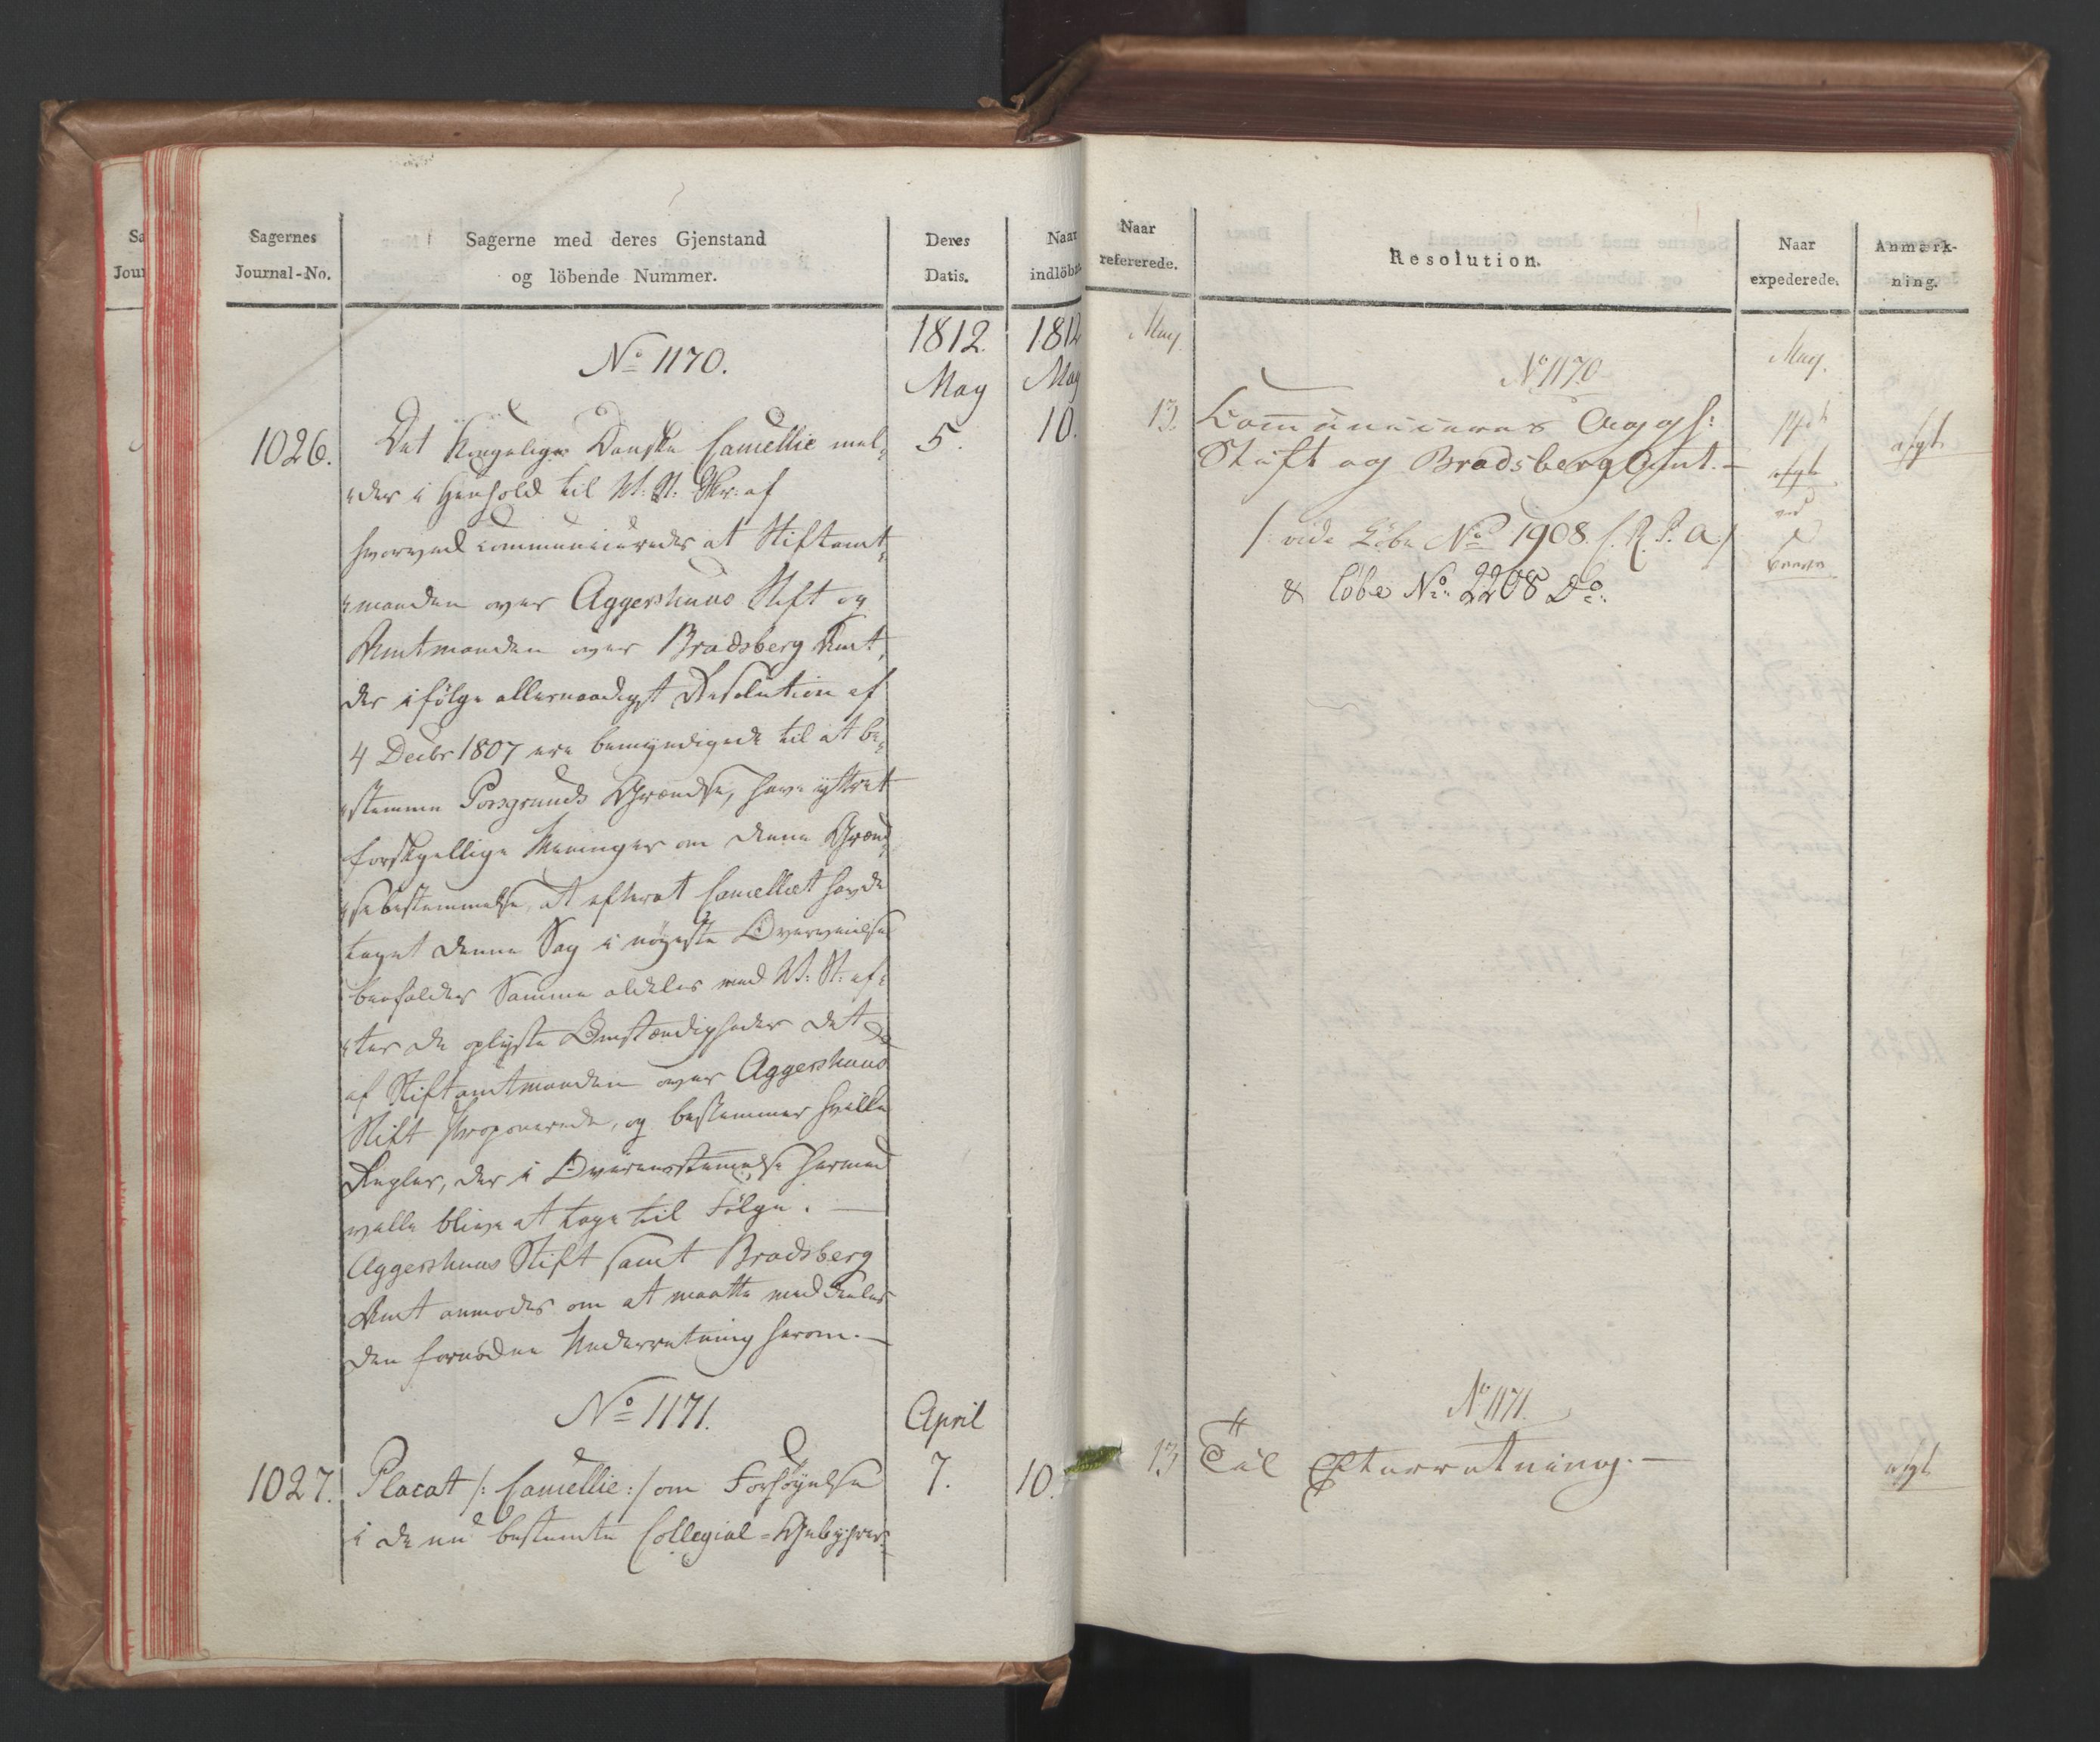 Sagernes
Journal-No.
Sagerne med deres Gjenstand
og löbende Nummer.
Deres
Datis.
Naar
indlöbne
1812.
May
1812
May
No 1170.
1026.
Det Kongelige Danske Cancellie mel-
5.
10.
der i Henhold til
hvorved communiceredes at Stiftamt-
manden over Aggershuus Stift og
Amtmanden over Bradsberg Amt,
der ifølge allernaadigst Resolution af
4 Decbr 1807 ere bemyndigede til at be-
stemme Porsgrunds Grændse, have yttret
forskjellige Meninger om denne Græn-
sebestemmelse, at efterat Cancelliet havde
taget denne Sag i nøyeste Overveielse
benholder samme aldeles med af-
ter de oplyste Omstændigheder det
af Stiftamtmanden over Aggershuus
Stift proponerede, og bestemmer hvilke
Regler, der i Overensstemmelse hermed
ville blive at tage til Følge. —
Aggershuus Stift samt Bradsberg
Amt anmodes om at maatte meddeeles
den fornødne Underretning herom. —
No 1171.
April
1027.
Placat /: Cancellie :/ om Forhøyelse
7.
10.
i de nu bestemte Collegial-Gebyhrer.
Naar
refererede.
Resolution.
Naar
expederede.
Anmærk-
ning.
May
May.
No 1170
13.
Communiceres Aggh:
Stift og Bradsberg Amt. —
afgt
/: vide Löbe No 1908 C. R. P. a :/
& löbe No. 2208 Do.
No 1171.
13
Til Efterretning. —
afgt